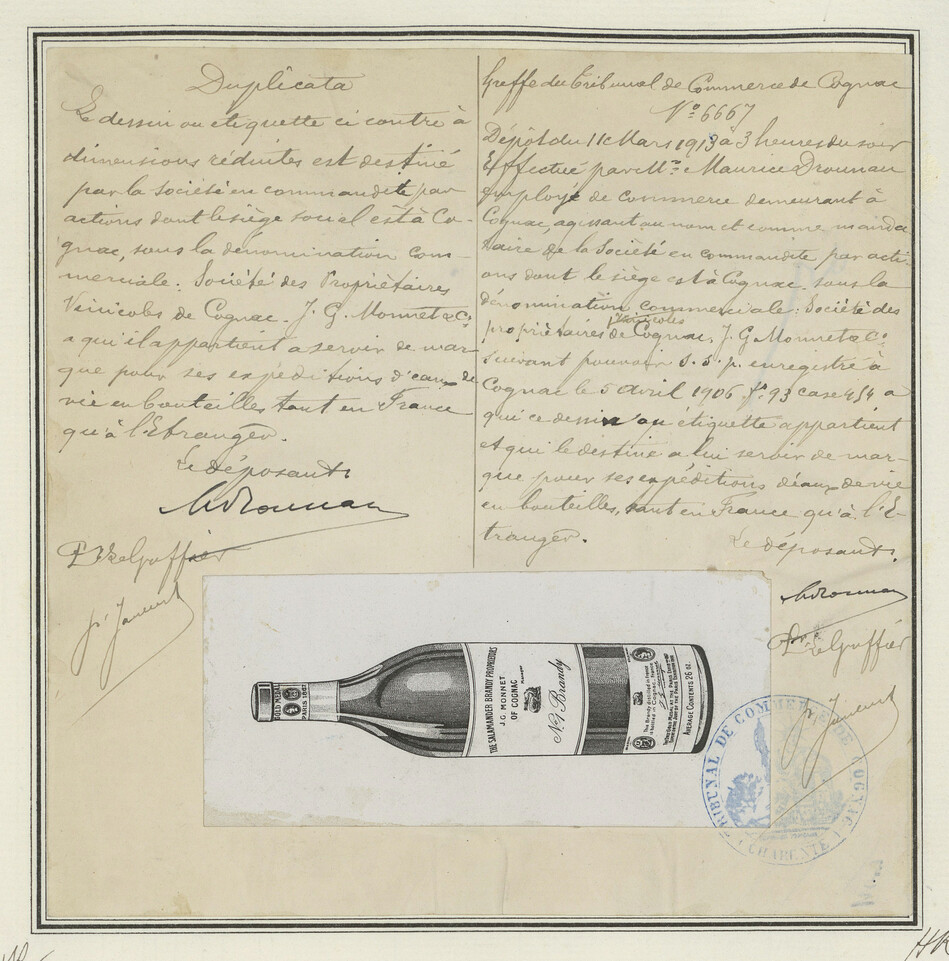 Duplicata
Le dessin ou étiquette ci contre à
dimensions réduites est destiné
par la société en commandite par
actions dont le siège social est à Co-
gnac, sous la dénomination com-
merciale: Société des Propriétaires
Vinicoles de Cognac. J. G. Monnet & Cº
a qui il appartient a servir de mar-
que pour ses expéditions d'eaux de
vie en bouteilles tant en France
qu'à l'Etranger.
Le déposant.
MDrounau
P. Le Greffier
Greffe du Tribunal de Commerce de Cognac
Nº 6667
Dépôt du 11 Mars 1913 à 3 heures du soir
Effectué par Mr. Maurice Drounau
employé de commerce demeurant à
Cognac, agissant au nom et comme manda
taire de la Société en commandite par acti-
ons dont le siège est à Cognac. sous la
dénomination commerciale: Société des
propriétaires vinicoles de Cognac. J. G Monnet & Cº
suivant pouvoir s. s. p. enregistré à
Cognac le 5 avril 1906 fº 93 case 454 a
qui ce dessin ou étiquette appartient
et qui le destine a lui servir de mar-
que pour ses expéditions d'eaux de vie
en bouteilles, tant en France qu'à l'E-
tranger.
Le déposant.
MDrounau
Le Greffier
GOLD MEDAL
PARIS 1867
THE SALAMANDER BRANDY PROPRIETORS
J.G. MONNET
OF COGNAC
Nº1 Brandy
AVERAGE CONTENTS 26 oz.
TRIBUNAL DE COMMERCE DE COGNAC
(CHARENTE)
HR